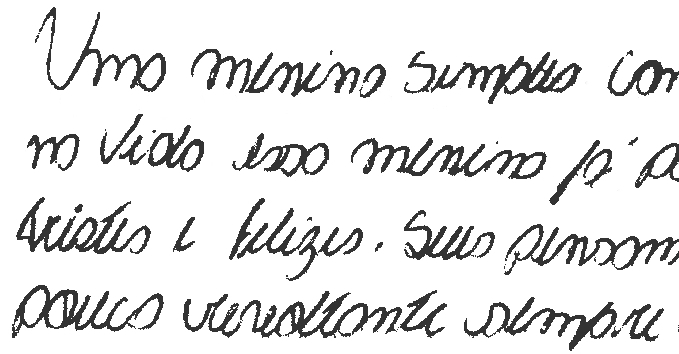 Uma menina simples com
na vida essa menina já
tristes e felizes. Seus pensam
pouco sempre